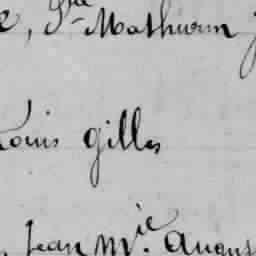 Ste Mathurin
Louis Gilles
Jean Mie August